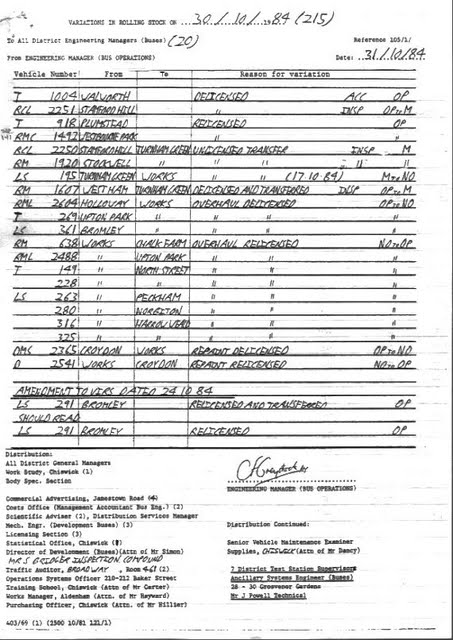 VARIATIONS IN ROLLING STOCK ON 30/10/1984 (215)
To All District Engineering Managers (Buses) (20) Reference 105/1/
From ENGINEERING MANAGER (BUS OPERATIONS) Date: 31/10/84
Vehicle Number From To Reason for variation
T 1004 WALWORTH DELICENSED ACC OP
RCL 2251 STAMFORD HILL " INSP OP to M
T 918 PLUMSTEAD RELICENSED OP
RMC 1492 WESTBOURNE PARK " "
RCL 2250 STAMFORD HILL TURNHAM GREEN UNLICENSED TRANSFER INSP M
RM 1920 STOCKWELL " " " " "
LS 195 TURNHAM GREEN WORKS " " (17.10.84) M to NO
RM 1607 WEST HAM TURNHAM GREEN DELICENSED AND TRANSFERED INSP OP to M
RML 2604 HOLLOWAY WORKS OVERHAUL DELICENSED OP to NO
T 269 UPTON PARK " " " "
LS 361 BROMLEY " " " "
RM 638 WORKS CHALK FARM OVERHAUL RELICENSED NO to OP
RML 2488 " UPTON PARK " " "
T 149 " NORTH STREET " " "
228 " " " " "
LS 263 " PECKHAM " " "
280 " NORBITON " " "
316 " HARROW WEALD " " "
325 " " " " "
DMS 2365 CROYDON WORKS REPAINT DELICENSED OP to NO
D 2541 WORKS CROYDON REPAINT RELICENSED NO to OP
AMENDMENT TO VIRS DATED 24 10 84
LS 291 BROMLEY RELICENSED AND TRANSFERED OP
SHOULD READ
LS 291 BROMLEY RELICENSED OP
Distribution:
All District General Managers
Work Study, Chiswick (1)
Body Spec. Section
ENGINEERING MANAGER (BUS OPERATIONS)
Commercial Advertising, Jamestown Road
Costs Office (Management Accountant Bus Eng.) (2)
Scientific Adver (2), Distribution Services Manager
Mech. Engr. (Development Buses) (3)
Licensing Section (3)
Statistical Office, Chiswick
Director of Development (Buses)(Attn of Mr Simon)
MR S BRIDGER INSPECTION COMPOUND
Traffic Auditor, BROADWAY. Room
Operations Systems Officer 210-212 Baker Street
Training School, Chiswick (Attn of Mr Carter)
Works Manager, Aldenham (Attn. of Mr Hayward)
Purchasing Officer, Chiswick (Attn. of Mr Hillier)
Distribution Continued:
Senior Vehicle Maintenance Examiner
Supplies, CHISWICK (Attn of Mr Dancy)
7 District Test Station Supervisors
Ancillary Systems Engineer (Buses)
26 - 30 Grosvenor Gardens
Mr J Powell Technical
403/69 (1) (2500 10/81 121/1)